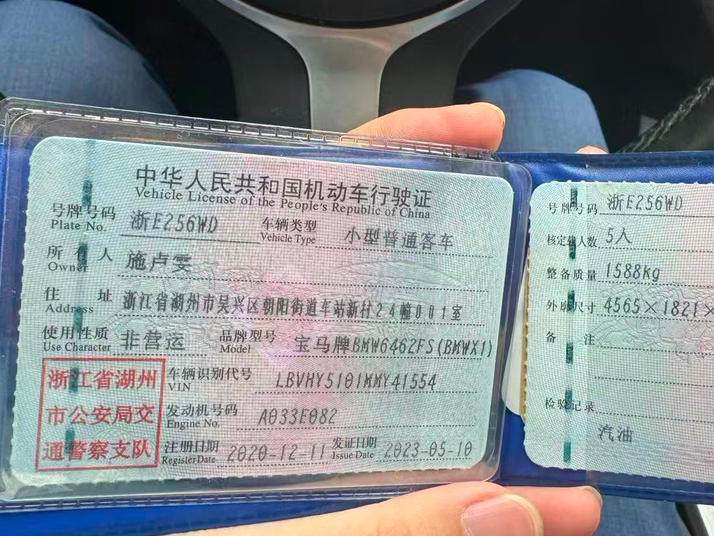 中华人民共和国机动车行驶证
Vehicle License of the People's Republic of China
号牌号码 浙E256WD 车辆类型 小型普通客车
Plate No. Vehicle Type
所有人 施卢雯
Owner
住址 浙江省湖州市吴兴区朝阳街道车站新村24幢001室
Address
使用性质 非营运 品牌型号 宝马牌BMW6462FS(BMWX1)
Use Character Model
浙江省湖州
市公安局交
通警察支队
车辆识别代号 LBVHY5101MMY41554
VIN
发动机号码 A033E082
Engine No.
注册日期 2020-12-11 发证日期 2023-05-10
Register Date Issue Date
号牌号码 浙E256WD
核定载人数 5人
整备质量 1588kg
外廓尺寸 4565×1821×
备注
检验记录
汽油